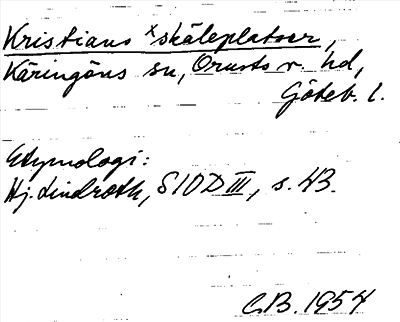 Kristians ×skäleplatser,
Käringöns sn, Orusts v. hd,
Göteb. l.
Etymologi:
Hj. Lindroth, SIOD III, s. 43.
C.B. 1954